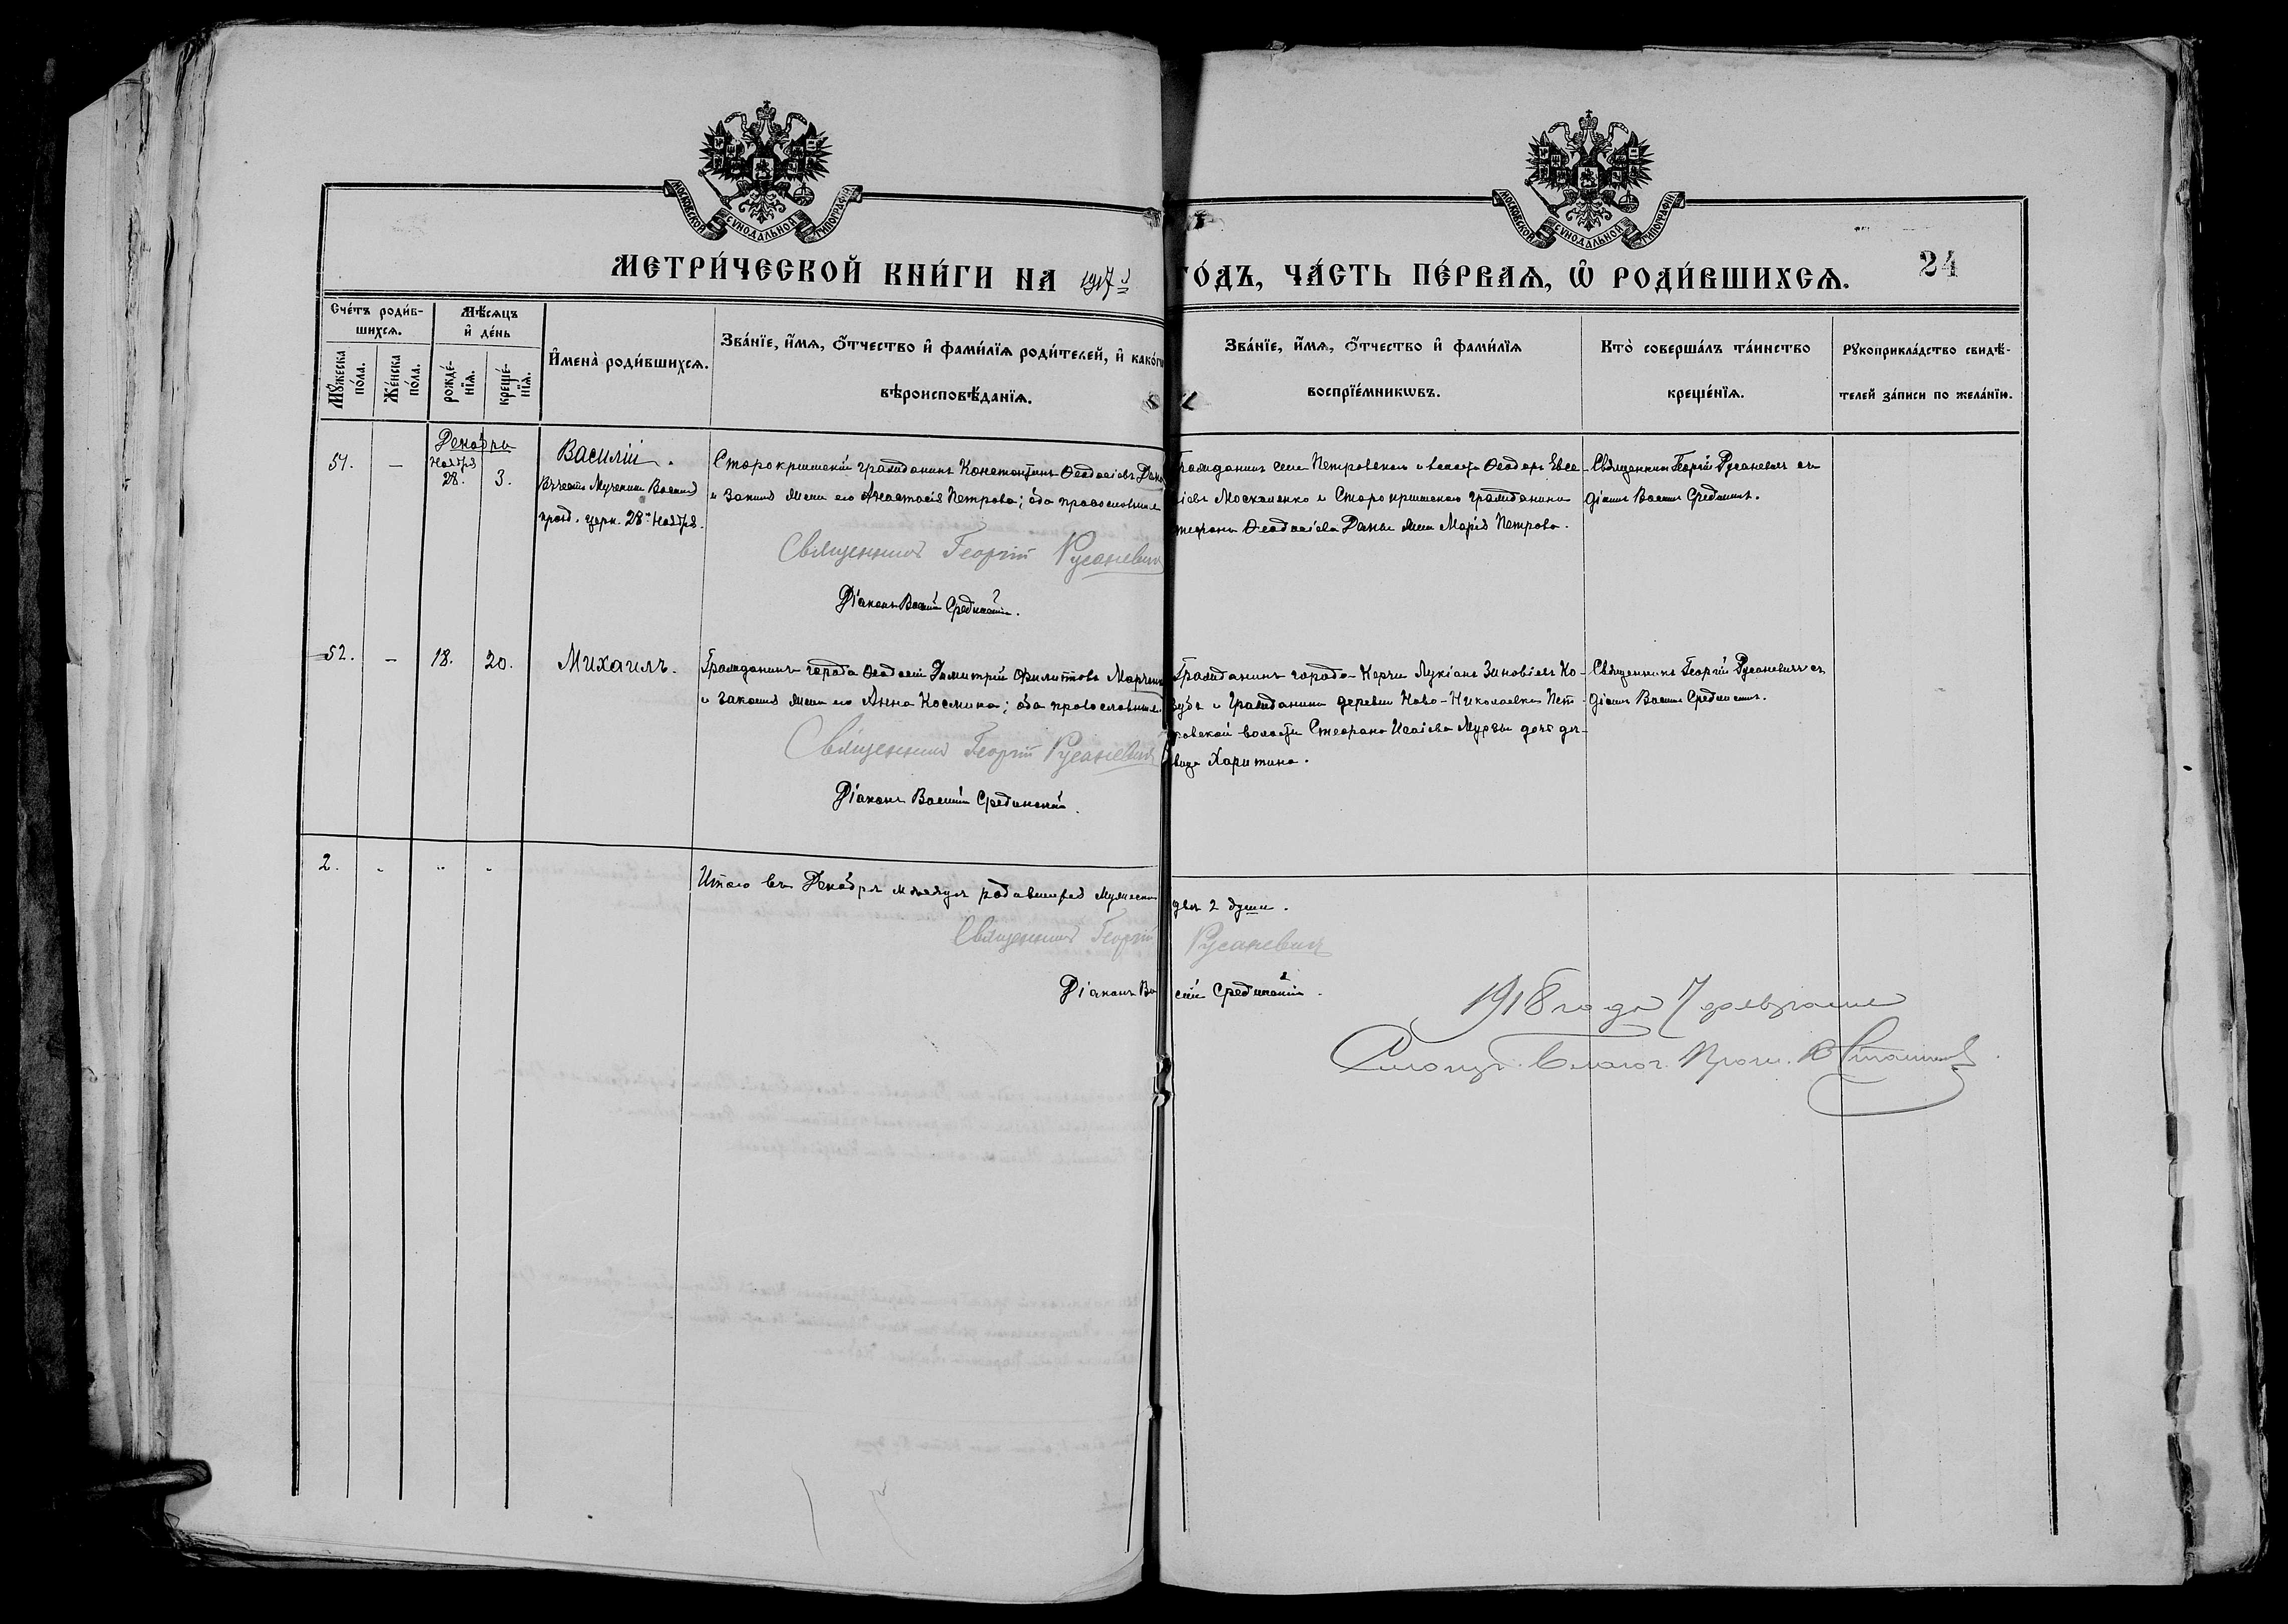 МОСКОВСКОЙ СѴНОДАЛЬНОЙ ТИПОГРАФІИ
МОСКОВСКОЙ СѴНОДАЛЬНОЙ ТИПОГРАФІИ
МЕТРИ́ЧЕСКОЙ КНИ́ГИ НА 1917 ГО́ДЪ, ЧА́СТЬ ПЕ́РВАЯ, Ѡ҆ РОДИ́ВШИХСЯ.
24
Сче́тъ роди́в-
шихся.
Мѣ́сяцъ
и҆ де́нь
Мꙋ́жеска
по́ла.
Же́нска
по́ла.
рожде́-
нїя.
креще́-
нїя.
И҆мена̀ роди́вшихся.
Зва́нїе, и҆́мя, ѻ҆́тчество и҆ фами́лїя роди́телей, и҆ како́гѡ
вѣроисповѣ́данїя.
Зва́нїе, и҆́мя, ѻ҆́тчество и҆ фами́лїя
воспрїе́мникѡвъ.
Кто̀ соверша́лъ та́инство
креще́нїя.
Рꙋкоприкла́дство свидѣ́-
телей за́писи по жела́нїю.
Декабрь
51.
–
Ноября
28.
3.
Василій.
Въ честь Мученика Василія
празд. церк. 28го Ноября.
Старокрымскій гражданинъ Константинъ Ѳеодосіевъ
и законная жена его Анастасія Петрова; оба православные
Священникъ Георгій Русаневич
Діаконъ Василій Срединскій.
Гражданинъ села Петровскаго и волости Ѳеодоръ Евсе-
іевъ Москаленко и Старокрымскаго гражданина
Стефана Ѳеодосіева жена Марія Петрова.
Священникъ Георгій Русаневичъ съ
діакон. Василіем Срединским.
52.
–
18.
20.
Михаилъ.
Гражданинъ города Ѳеодосіи Димитрій Филипповъ Марченко
и законная жена его Анна Космина; оба православные
Священникъ Георгій Русаневич
Діаконъ Василій Срединскій.
Гражданинъ города Керчи Лукіанъ Зиновіевъ Ко-
зубъ и гражданина деревни Ново-Николаевки Пет-
ровской волости Стефана Исаіева Мурзы дочь де-
вица Харитина.
Священникъ Георгій Русаневичъ съ
діакон. Василіем Срединским.
2.
Итого въ Декабрѣ мѣсяцѣ родившихся мужеска
два 2 души.
Священникъ Георгій Русаневич
Діаконъ Василій Срединскій.
1918 года 7 февраля
Благоч. Прот.